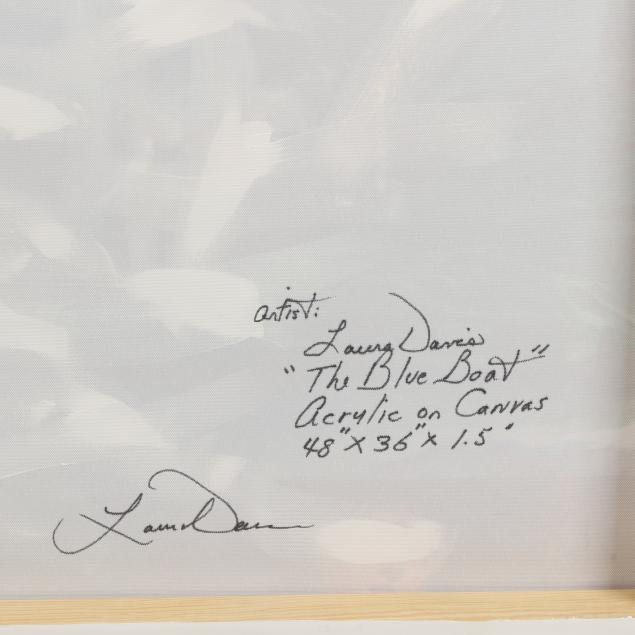 artist:
Laura Davis
"The Blue Boat"
Acrylic on Canvas
48" X 36" X 1.5"
Laura Davis